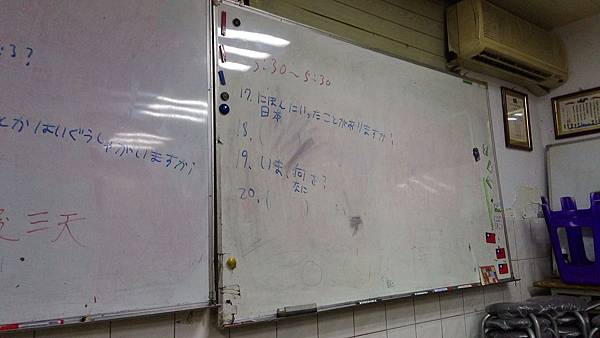 :3?
とかはいぐうしゃがいますか?
三天
5:30~8:30
17. にほんにいったことがありますか?
日本
18. (
19. いま、何で?
なに
20. ( )